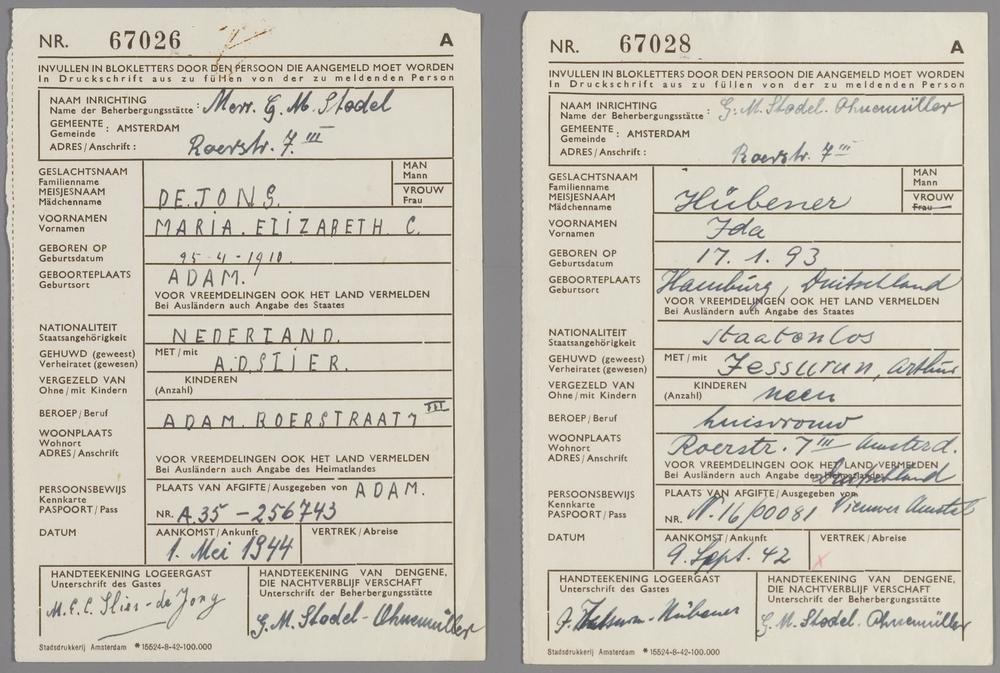 NR. 67026 A
INVULLEN IN BLOKLETTERS DOOR DEN PERSOON DIE AANGEMELD MOET WORDEN
In Druckschrift aus zu füllen von der zu meldenden Person
NAAM INRICHTING
Name der Beherbergungsstätte : Mevr. G. M. Stodel
GEMEENTE
Gemeinde : AMSTERDAM
ADRES/Anschrift : Roerstr. 7 III
GESLACHTSNAAM
Familienname
MEISJESNAAM
Mädchenname
DE JONG.
MAN
Mann
VROUW
Frau
VOORNAMEN
Vornamen
MARIA. ELIZABETH C.
GEBOREN OP
Geburtsdatum
25-4-1910.
GEBOORTEPLAATS
Geburtsort
ADAM.
VOOR VREEMDELINGEN OOK HET LAND VERMELDEN
Bei Ausländern auch Angabe des Staates
NATIONALITEIT
Staatsangehörigkeit
NEDERLAND.
GEHUWD (geweest)
Verheiratet (gewesen)
MET/mit
A.D. SLIER.
VERGEZELD VAN
Ohne/mit Kindern
KINDEREN
(Anzahl)
BEROEP/Beruf
ADAM. ROERSTRAAT 7 III
WOONPLAATS
Wohnort
ADRES/Anschrift
VOOR VREEMDELINGEN OOK HET LAND VERMELDEN
Bei Ausländern auch Angabe des Heimatlandes
PERSOONSBEWIJS
Kennkarte
PASPOORT/Pass
PLAATS VAN AFGIFTE/Ausgegeben von ADAM.
NR. A.35 - 256743
DATUM
AANKOMST/Ankunft
1. Mei 1944
VERTREK/Abreise
HANDTEEKENING LOGEERGAST
Unterschrift des Gastes
M.E.C. Slier-de Jong
HANDTEEKENING VAN DENGENE,
DIE NACHTVERBLIJF VERSCHAFT
Unterschrift der Beherbergungsstätte
G. M. Stodel-Ohnemüller
Stadsdrukkerij Amsterdam *15524-8-42-100.000
NR. 67028 A
INVULLEN IN BLOKLETTERS DOOR DEN PERSOON DIE AANGEMELD MOET WORDEN
In Druckschrift aus zu füllen von der zu meldenden Person
NAAM INRICHTING
Name der Beherbergungsstätte : G. M. Stodel-Ohnemüller
GEMEENTE
Gemeinde : AMSTERDAM
ADRES/Anschrift : Roerstr. 7 III
GESLACHTSNAAM
Familienname
MEISJESNAAM
Mädchenname
Hübener
MAN
Mann
VROUW
Frau
VOORNAMEN
Vornamen
Ida
GEBOREN OP
Geburtsdatum
17. 1. 93
GEBOORTEPLAATS
Geburtsort
Hamburg, Duitschland
VOOR VREEMDELINGEN OOK HET LAND VERMELDEN
Bei Ausländern auch Angabe des Staates
NATIONALITEIT
Staatsangehörigkeit
Staatenlos
GEHUWD (geweest)
Verheiratet (gewesen)
MET/mit
Jessurun, Arthur
VERGEZELD VAN
Ohne/mit Kindern
KINDEREN
(Anzahl)
neen
BEROEP/Beruf
huisvrouw
WOONPLAATS
Wohnort
ADRES/Anschrift
Roerstr. 7 III Amsterd.
VOOR VREEMDELINGEN OOK HET LAND VERMELDEN
Bei Ausländern auch Angabe des Heimatlandes
Duitschland
PERSOONSBEWIJS
Kennkarte
PASPOORT/Pass
PLAATS VAN AFGIFTE/Ausgegeben von
NR. N. 16/00081 Nieuwer Amstel
DATUM
AANKOMST/Ankunft
9. Sept. 42
VERTREK/Abreise
HANDTEEKENING LOGEERGAST
Unterschrift des Gastes
Hübener
HANDTEEKENING VAN DENGENE,
DIE NACHTVERBLIJF VERSCHAFT
Unterschrift der Beherbergungsstätte
G. M. Stodel-Ohnemüller
Stadsdrukkerij Amsterdam *15524-8-42-100.000